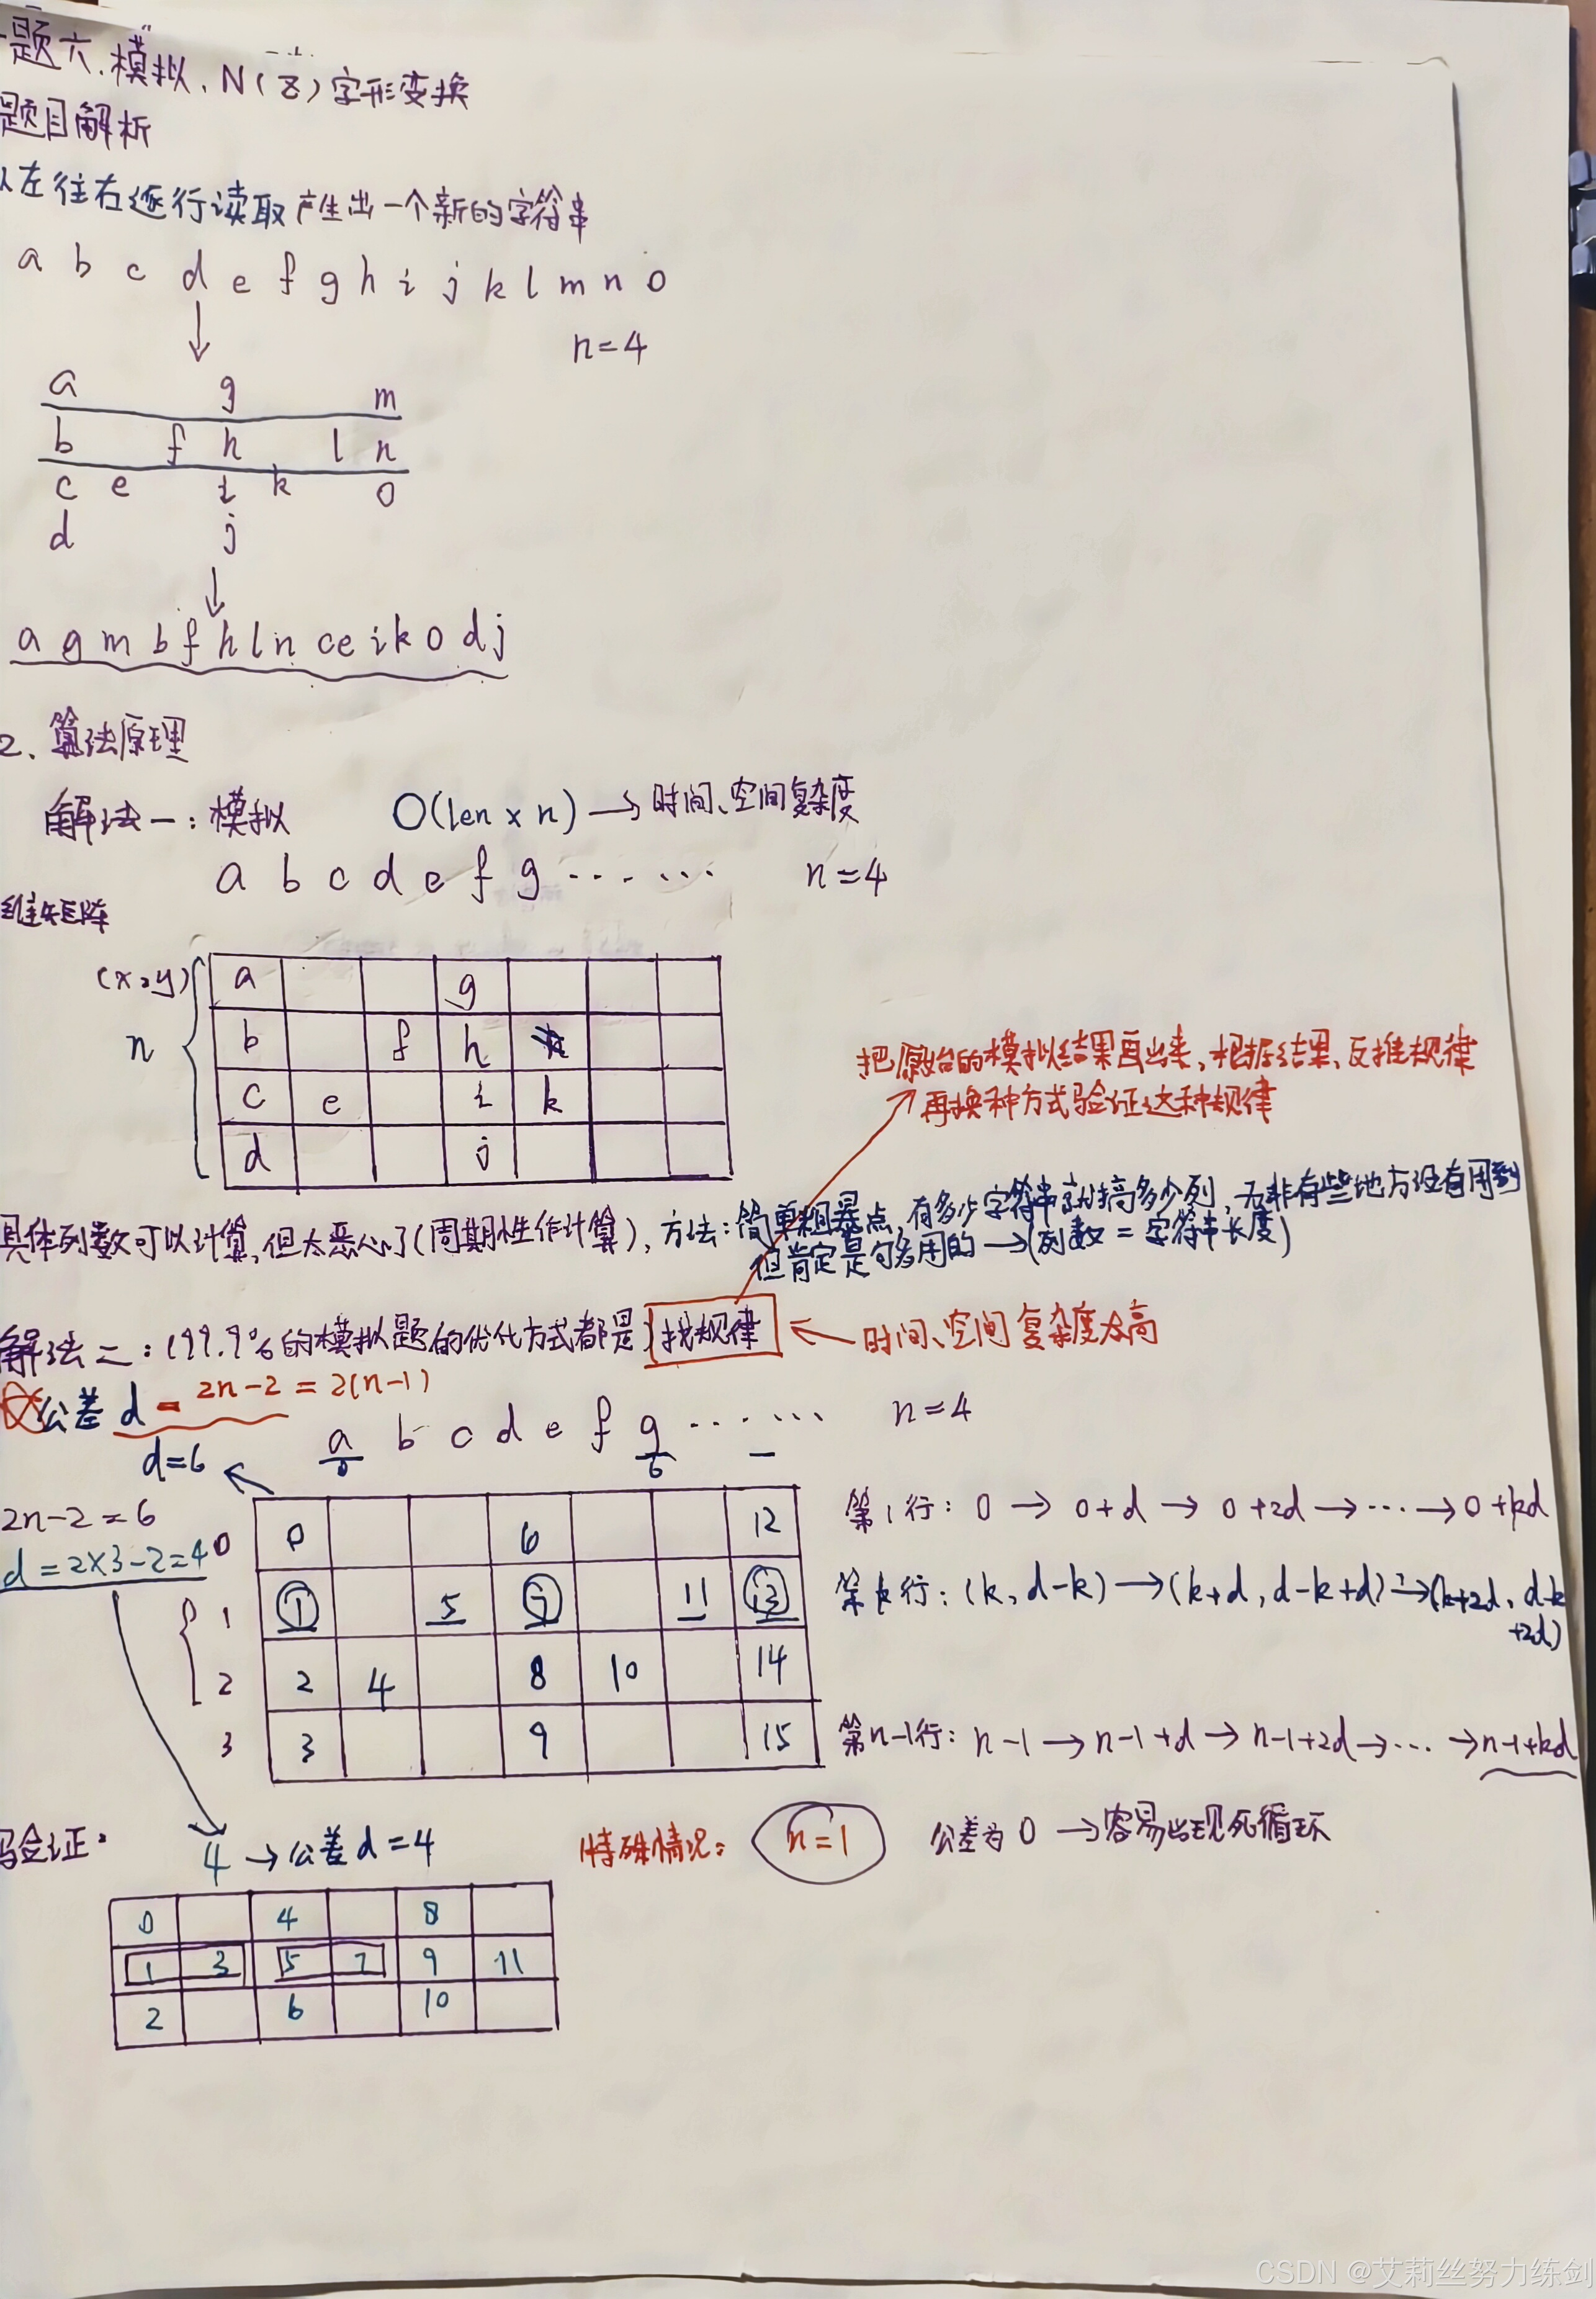 题六.模拟.N(Z)字形变换
题目解析
从左往右逐行读取产生出一个新的字符串
a b c d e f g h i j k l m n o
n=4
a g m
b f h l n
c e i k o
d j
a g m b f h l n c e i k o d j
2、算法原理
解法一:模拟 O(len × n) → 时间、空间复杂度
a b c d e f g ······ n=4
维矩阵
(x,y) a g
n b f h
c e i k
d j
把原始的模拟结果画出来,根据结果,反推规律
再换种方式验证这种规律
具体列数可以计算,但太恶心了(周期性作计算),方法:简单粗暴点,有多少字符串就搞多少列,无非有些地方没有用到
但肯定是够多用的 →(列数 = 字符串长度)
解法二:(99.9%的模拟题的优化方式都是 找规律 ← 时间、空间复杂度太高
公差 d = 2n-2 = 2(n-1)
a b c d e f g ······ n=4
0 6
d=6
2n-2=6
d=2×3-2=4
0 0 6 12
1 1 5 7 11 13
2 2 4 8 10 14
3 3 9 15
第1行: 0 → 0+d → 0+2d → ··· → 0+kd
第k行: (k, d-k) → (k+d, d-k+d) → (k+2d, d-k+2d)
第n-1行: n-1 → n-1+d → n-1+2d → ··· → n-1+kd
验证:
4 → 公差d=4
特殊情况: n=1 公差为0 → 容易出现死循环
0 4 8
1 3 5 7 9 11
2 6 10
CSDN @艾莉丝努力练剑